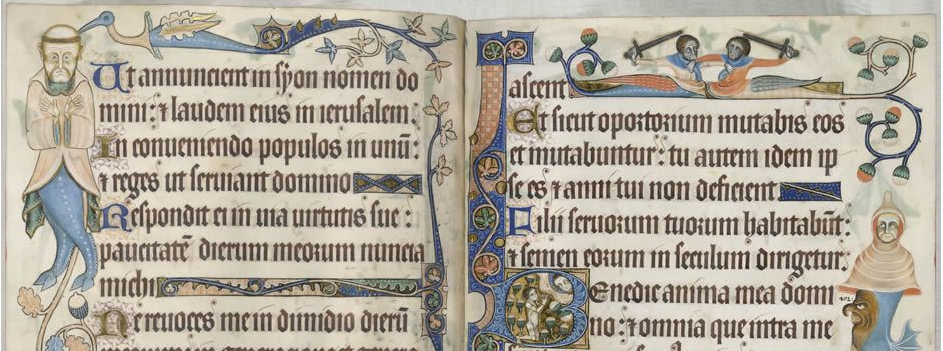 Ut annuncient in syon nomen do
mini: ⁊ laudem eius in ierusalem:
In conueniendo populos in unū:
⁊ reges ut seruiant domino
Respondit ei in uia uirtutis sue:
paucitatē dierum meorum nuncia
michi
Ne reuoces me in dimidio dierū
ascent.
Et sicut opertorium mutabis eos
et mutabuntur: tu autem idem ip
se es ⁊ anni tui non deficient
Filii seruorum tuorum habitabūt:
⁊ semen eorum in seculum dirigetur.
Benedic anima mea domi
no: ⁊ omnia que intra me